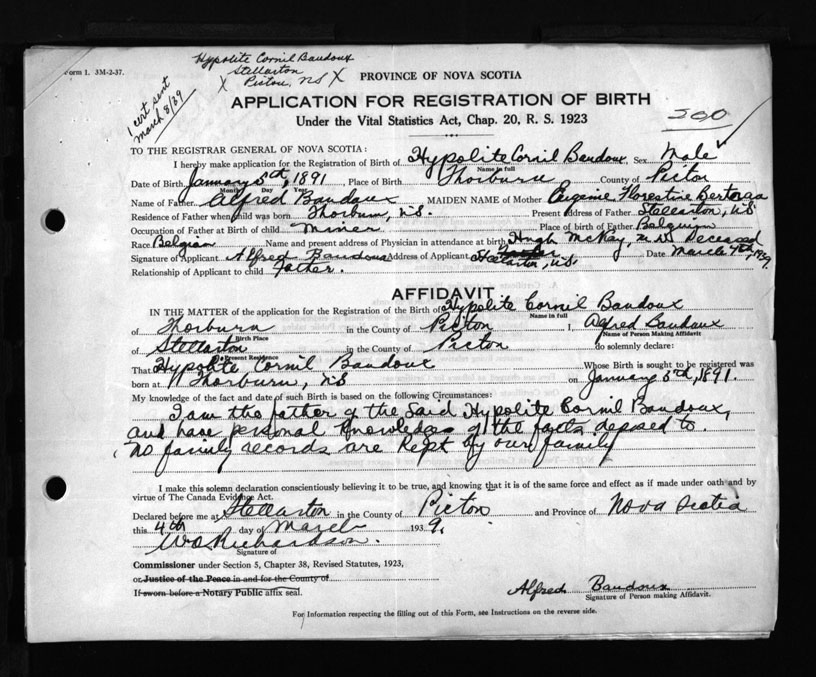 Hypolite Cornil Baudoux
Stellarton
X Pictou, NS X
Form 1. 3M-2-37.
1 cert sent
March 8/39
PROVINCE OF NOVA SCOTIA
APPLICATION FOR REGISTRATION OF BIRTH
500
Under the Vital Statistics Act, Chap. 20, R. S. 1923
TO THE REGISTRAR GENERAL OF NOVA SCOTIA:
I hereby make application for the Registration of Birth of Hypolite Cornil Baudoux Sex Male
Name in full
Date of Birth January 5th, 1891 Place of Birth Thorburn County of Pictou
Month Day Year
Name of Father Alfred Baudoux MAIDEN NAME of Mother Eugenie Florestine
Residence of Father when child was born Thorburn, NS. Present Address of Father Stellarton, NS
Occupation of Father at Birth of child Miner Place of birth of Father Belguim
Race Belgian Name and present address of Physician in attendance at birth Hugh McKay, M.D. Deceased
Signature of Applicant Alfred Baudoux Address of Applicant Stellarton, NS Date March 4th, 1939.
Relationship of Applicant to child Father.
AFFIDAVIT
IN THE MATTER of the application for the Registration of the Birth of Hypolite Cornil Baudoux
Name in full
of Thorburn in the County of Picton I, Alfred Baudoux
Birth Place Name of Person Making Affidavit
of Stellarton in the County of Picton do solemnly declare:
Present Residence
That Hypolite Cornil Baudoux Whose Birth is sought to be registered was
born at Thorburn, NS on January 5th, 1891.
My knowledge of the fact and date of such Birth is based on the following Circumstances:
I am the father of the said Hypolite Cornil Baudoux,
and have personal knowledge of the facts deposed to.
No family records are kept by our family
I make this solemn declaration conscientiously believing it to be true, and knowing that it is of the same force and effect as if made under oath and by
virtue of The Canada Evidence Act.
Declared before me at Stellarton in the County of Picton and Province of Nova Scotia
this 4th day of March 1939.
W O Richardson.
Signature of
Commissioner under Section 5, Chapter 38, Revised Statutes, 1923,
or Justice of the Peace in and for the County of
If sworn before a Notary Public affix seal.
Alfred Baudoux
Signature of Person making Affidavit.
For Information respecting the filling out of this Form, see Instructions on the reverse side.